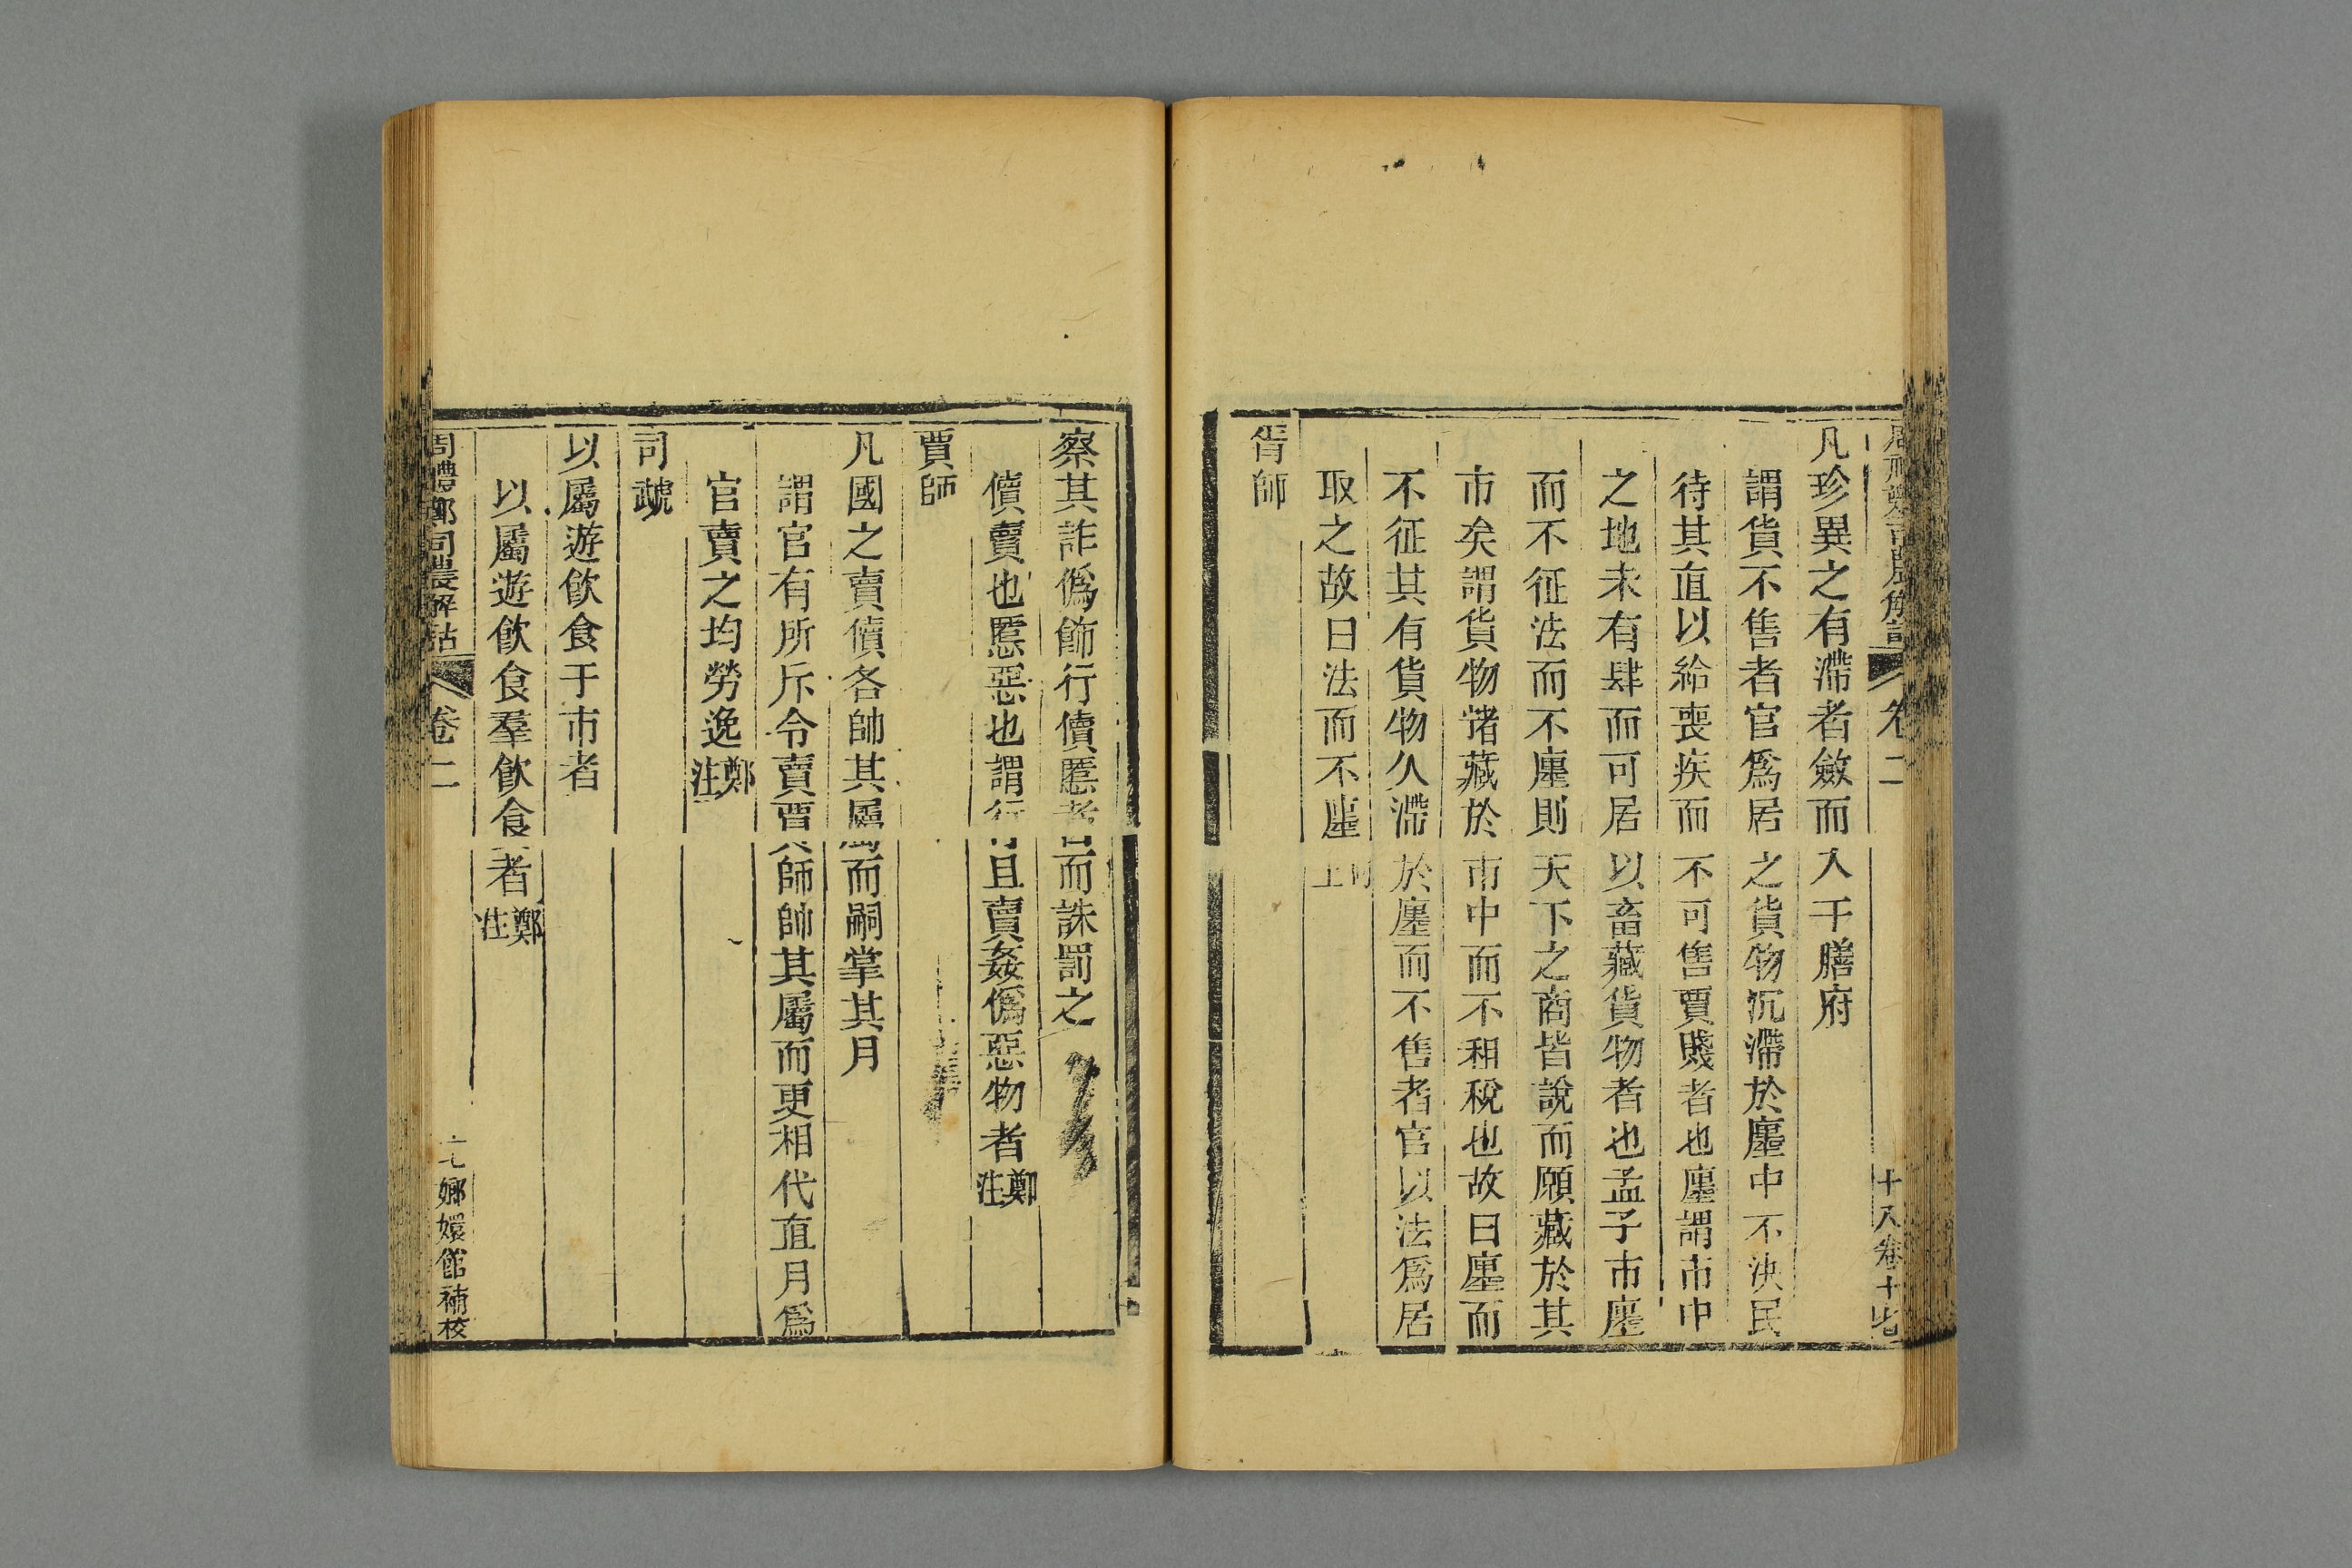 周禮鄭司農解詁 卷二 十八卷十七
凡珍異之有滯者斂而入于膳府
謂貨不售者官爲居之貨物沉滯於廛中不決民
待其直以給喪疾而不可售賈賤者也廛謂市中
之地未有肆而可居以畜藏貨物者也孟子市廛
而不征法而不廛則天下之商皆說而願藏於其
市矣謂貨物㣥藏於市中而不租稅也故曰廛而
不征其有貨物久滯於廛而不售者官以法爲居
取之故曰法而不廛同上
胥師
察其詐僞飾行儥慝者而誅罰之
儥賣也慝惡也謂行且賣姦僞惡物者鄭注
賈師
凡國之賣儥各帥其屬而嗣掌其月
謂官有所斥令賣賈師帥其屬而更相代直月爲
官賣之均勞逸鄭注
司虣
以屬遊飲食于市者
以屬遊飲食羣飲食者鄭注
周禮鄭司農解詁 卷二 嫏嬛館補校